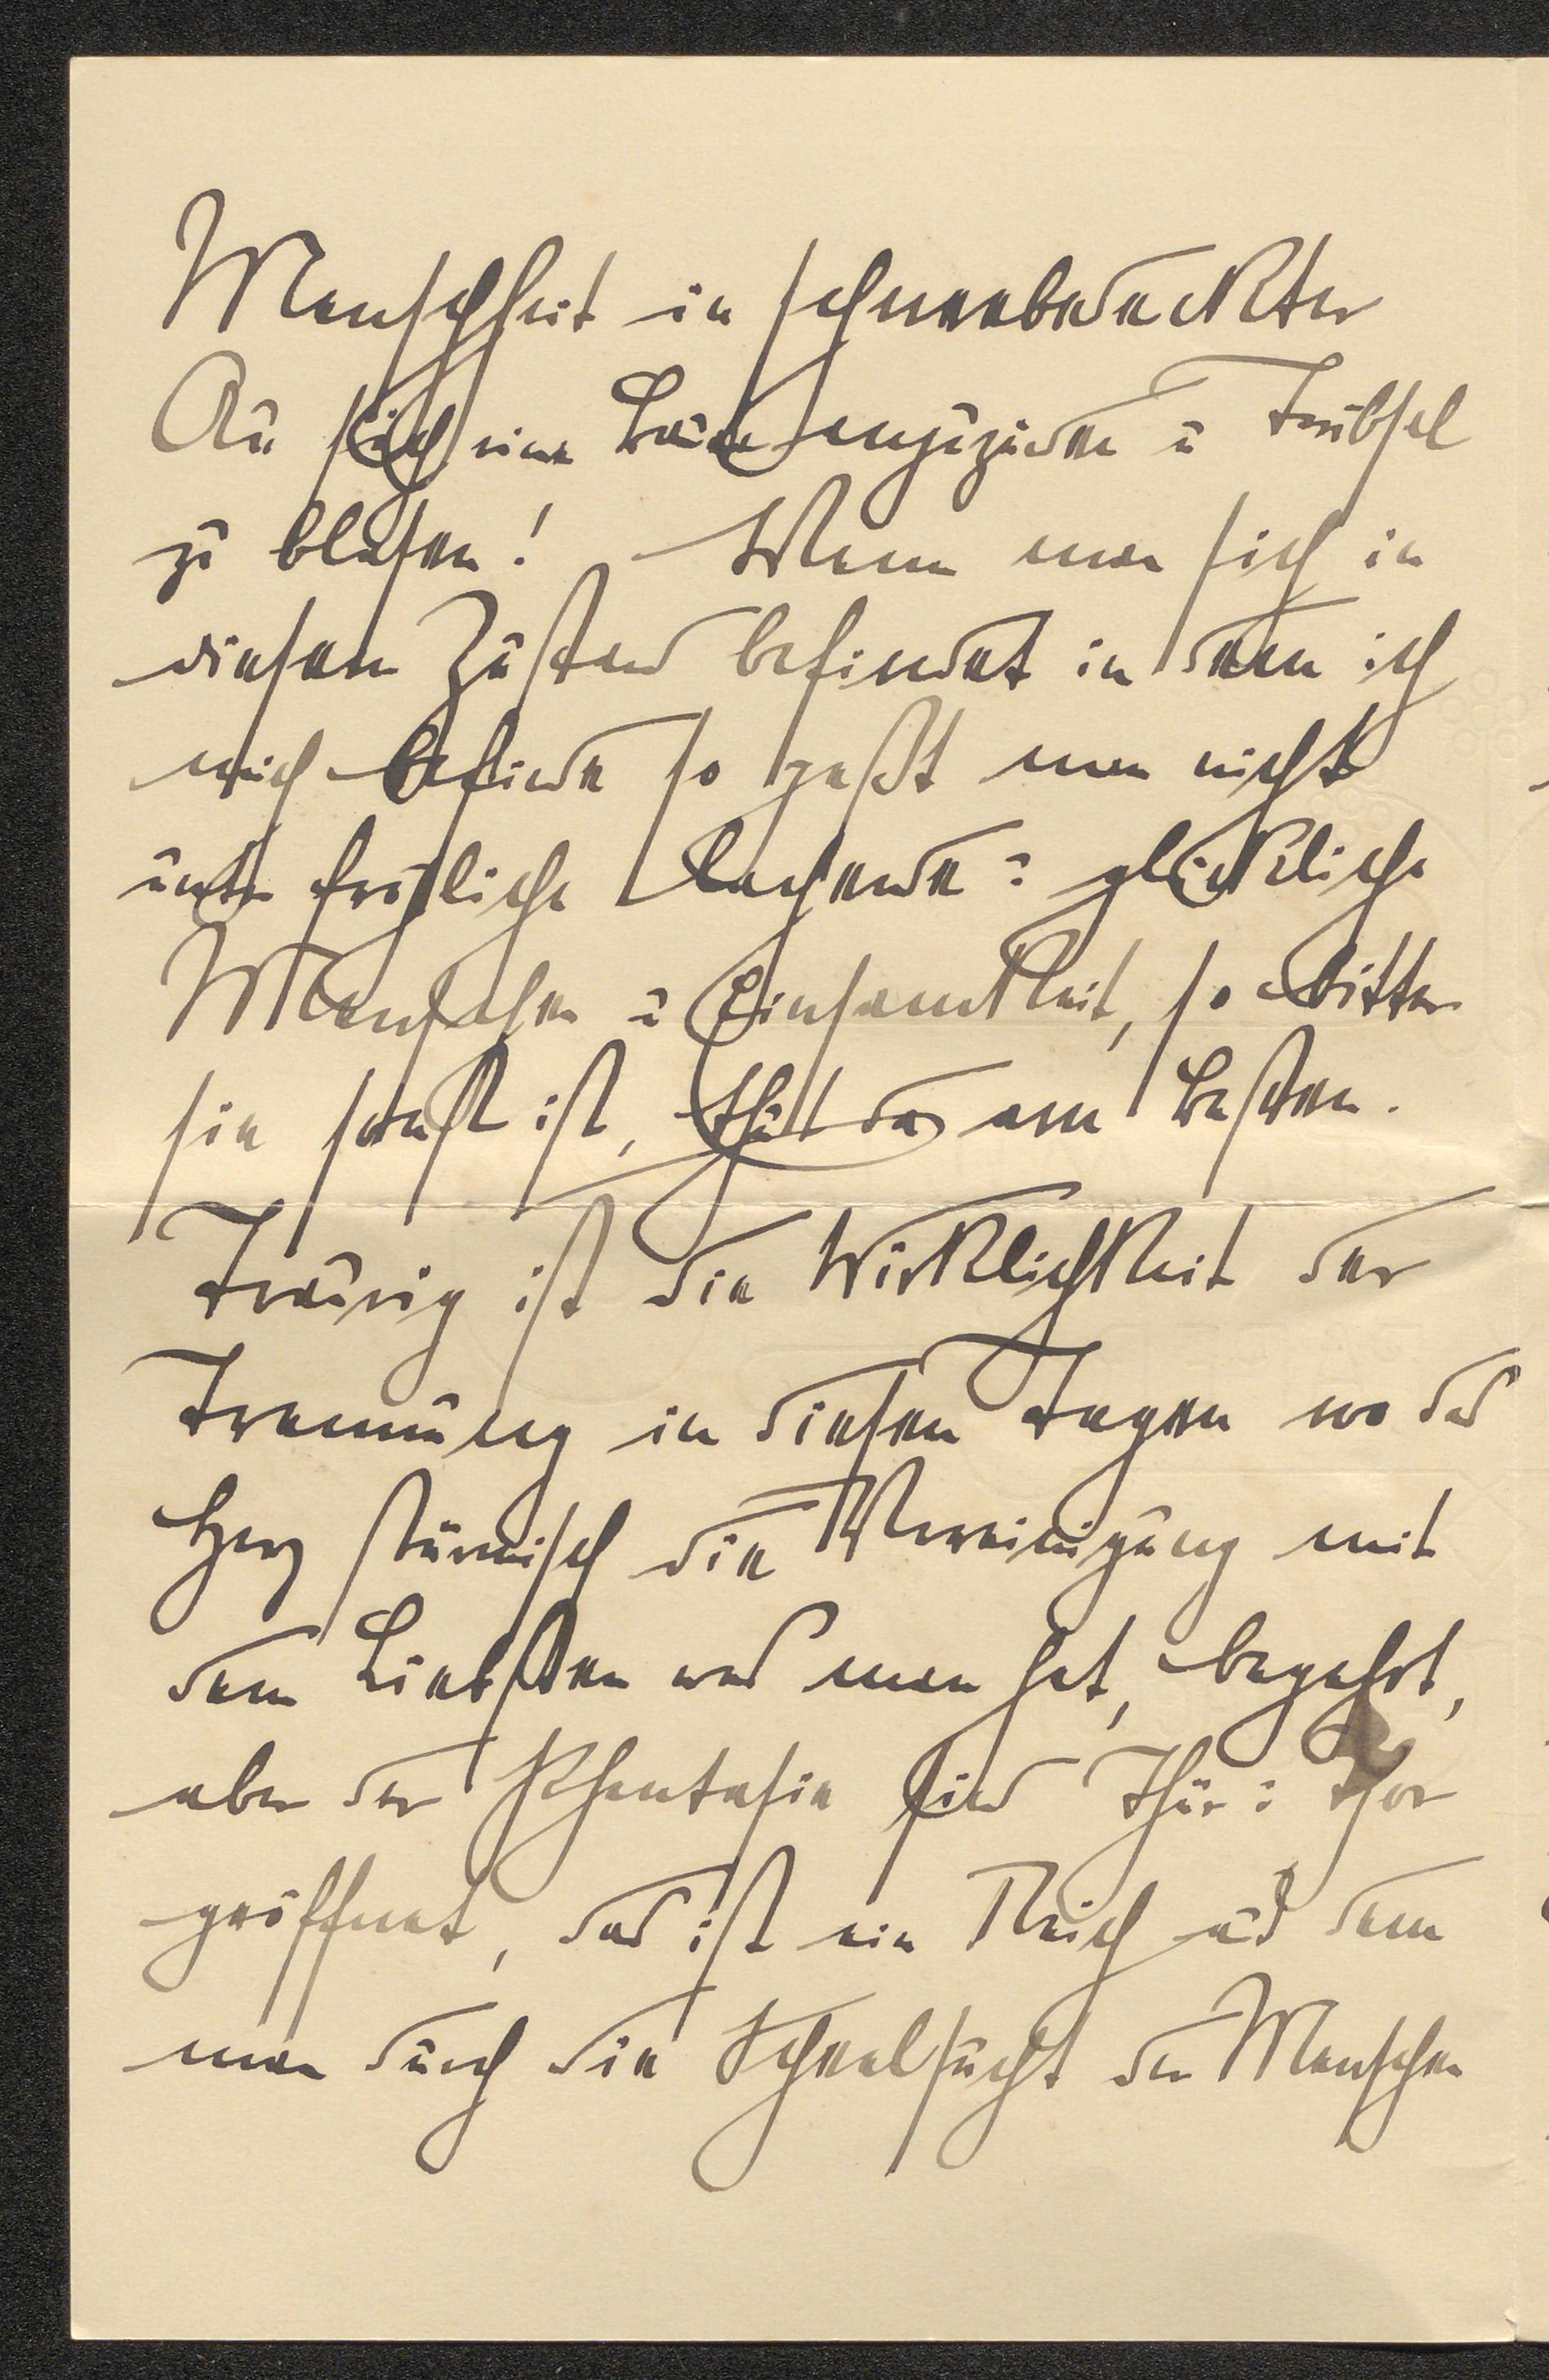 Menschheit in schneebedeckter
Au sich eine Bäum anzuzünden u Trübsal
zu blasen! Wenn man sich in
diesem Zustand befindet in dem ich
mich befinde so paßt man nicht
unter fröhliche lachende u glückliche
Menschen u Einsamkeit, so bitter
sie sonst ist, thut da am Besten.
Traurig ist die Wirklichkeit der
Trennung in diesen Tagen wo das
Herz stürmisch die Vereinigung mit
dem Liebsten was man hat, begehrt,
aber der Phantasie sind Thür u Thor
geöffnet, das ist ein Reich aus dem
man durch die Scheelsucht der Menschen